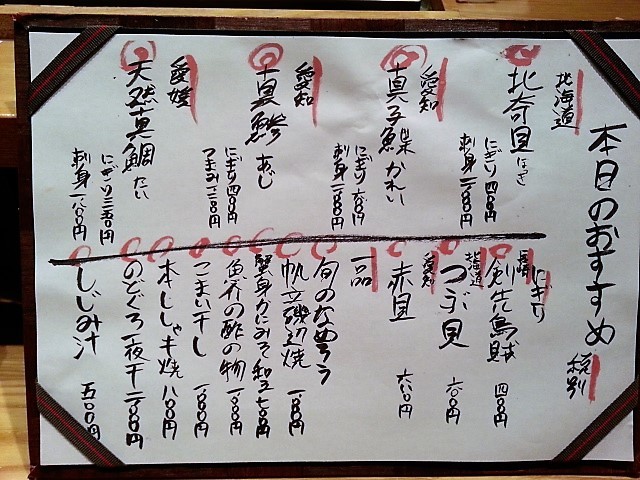 本日のおすすめ
税別
北海道
北寄貝 ほっき
にぎり 四〇〇円
刺身 一、〇〇〇円
愛知
真子鰈 かれい
にぎり 六〇〇円
刺身 一、八〇〇円
愛知
真鯵 あじ
にぎり 四〇〇円
つまみ 一、二〇〇円
愛媛
天然真鯛 たい
にぎり 三五〇円
刺身 一、八〇〇円
にぎり
長崎
剣先烏賊 四〇〇円
北海道
つぶ貝 六〇〇円
愛知
赤貝 六八〇円
一品
旬のなめろう
帆立磯辺焼 一、〇〇〇円
蟹身かにみそ和え 七〇〇円
魚介の酢の物 一、〇〇〇円
こまい干し 一、〇〇〇円
本ししゃも焼 八〇〇円
のどぐろ一夜干 二、八〇〇円
しじみ汁 五〇〇円